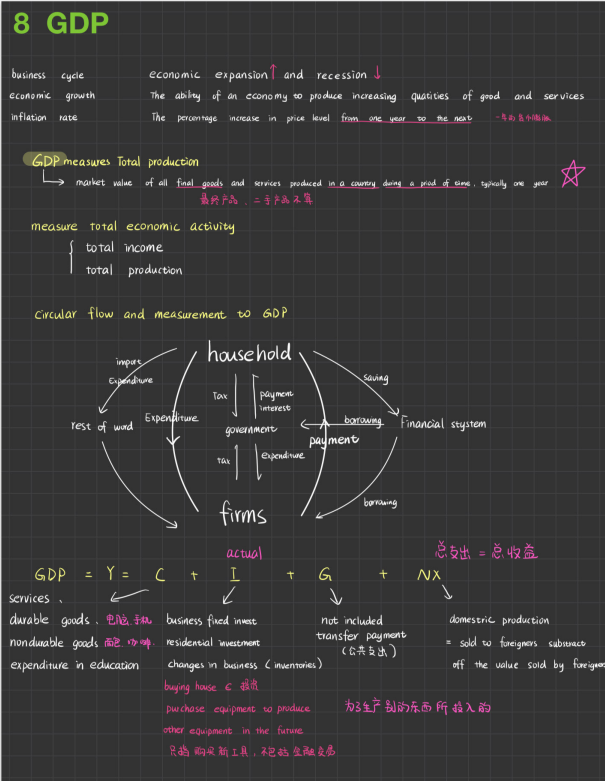 8 GDP
business cycle economic expansion↑ and recession↓
economic growth The ability of an economy to produce increasing quatities of good and services
inflation rate The percentage increase in price level from one year to the next 一年的
GDP measures Total production
market value of all final goods and services produced in a country during a priod of time, typically one year
最终产品，二手产品不算
measure total economic activity
total income
total production
Circular flow and measurement to GDP
household
import
Expenditure
saving
Tax
payment
interest
Expenditure
rest of word
government
borrowing
Financial stystem
payment
Tax
expenditure
borrowing
firms
actual
总支出 = 总收益
GDP = Y = C + I + G + NX
services、
durable goods、电脑、手机
nondurable goods 面包、咖啡、
expenditure in education
business fixed invest
residential investment
changes in business (inventories)
buying house ∈ 投资
purchase equipment to produce
other equipment in the future
只包括购买新工具，不包括金融交易
not included
transfer payment
(公共支出)
为了生产别的东西所投入的
domestric production
= sold to foreigners substract
off the value sold by foreigners